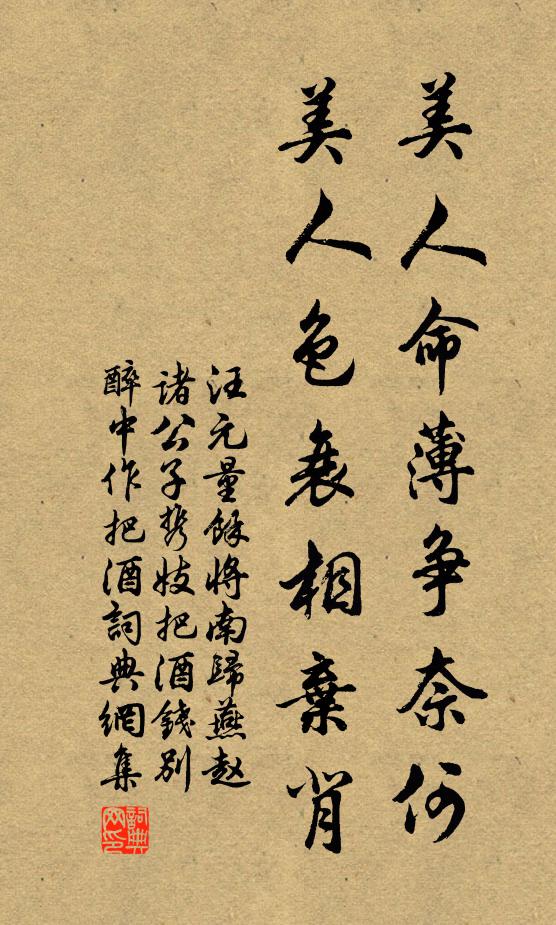 美人命薄争奈何
美人色衰相棄背
汪元量餘將南歸燕赵
諸公子携妓把酒錢別
醉中作把酒詞典網集
詞典网印